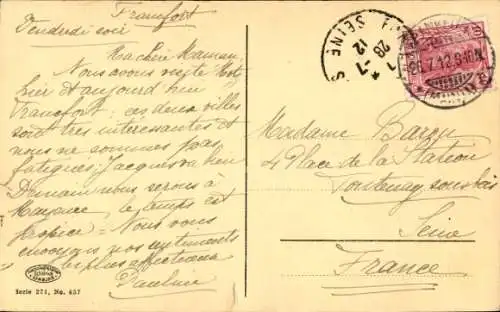 Francfort
Vendredi soir
Ma chère Maman,
Nous avons visité
hier et aujourd'hui
Francfort; ces deux villes
sont très intéressantes et
nous ne sommes pas
fatigués; Jacques va bien
Demain nous serons à
Mayence, le temps est
propice = Nous vous
envoyons nos sentiments
les plus affectueux
Pauline
Serie 271, No. 457
SEINE
28 -7
12
Madame Bazin
4 Place de la Station
Fontenay sous bois
Seine
France